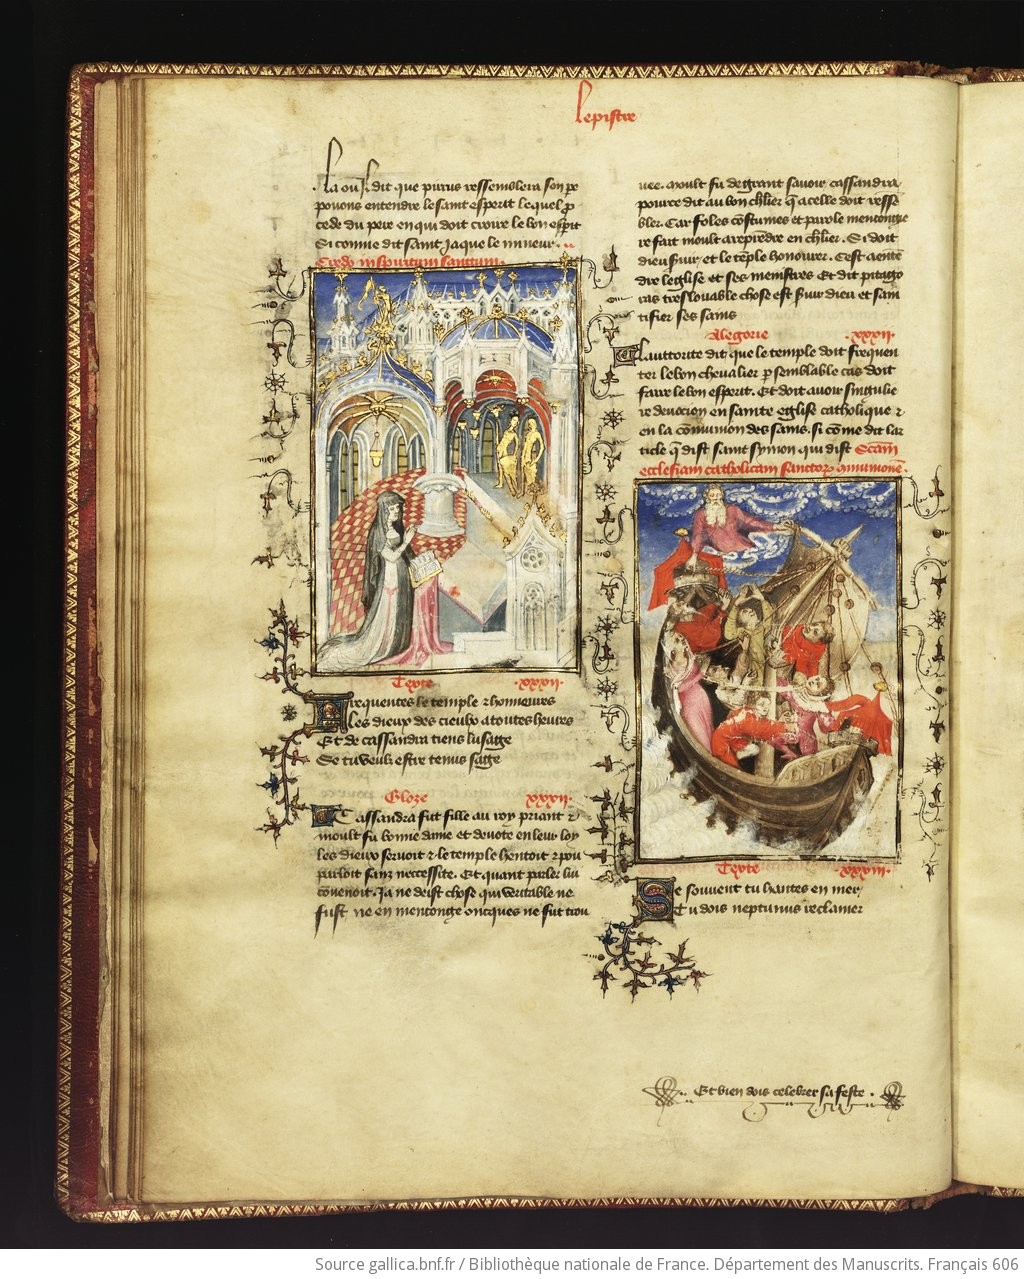 Lepistre
La ou Il dit que pirus ressemblera son pe
pouons entendre le saint esperit lequel p
cede du pere en qui doit croire le bon esprit
Si comme dit saint Jaque le mineur.
Credo in spiritum sanctum.
Texte .xxxii.
Frequentes le temple & honnoures
Les dieux des cieulx a toutes heures
Et de cassandra tiens lusage
Se tu veulx estre tenus sage
Gloze xxxii.
Cassandra fut fille au roy priant &
moult fu bonne dame et deuote en leur loy
les dieux seruoit & le temple hentoit & pou
parloit sanz neccessite. Et quant parler lui
couenoit. Ja ne deist chose qui veritable ne
fust ne en menconge oncques ne fut trou
uee. moult fu de grant sauoir cassandra,
pource dit au bon chlier q a celle doit resse
bler. Car foles costumes et parole mencongie
re fait moult a reprendre en chlier. Si doit
dieu seruir et le teple honourer. Cest a ente
dre leglise et ses menistres Et dit pitago
ras tres louable chose est seruir dieu et sain
tifier ses sains
Alegorie .xxxii.
Lauttorite dit que le temple doit frequen
ter le bon cheualier p semblable cas doit
faire le bon esperit. Et doit auoir singulie
re deuocion en sainte eglise catholique &
en la comunion des sains. si come dit lar
ticle q dist saint symon qui dist Scam
ecclesiam catholicam sanctor comunione.
Texte .xxxiii.
Se souuent tu hantes en mer
Tu dois neptunus reclamer
Et bien dois celebrer sa feste.
Source gallica.bnf.fr / Bibliothèque nationale de France. Département des Manuscrits. Français 606